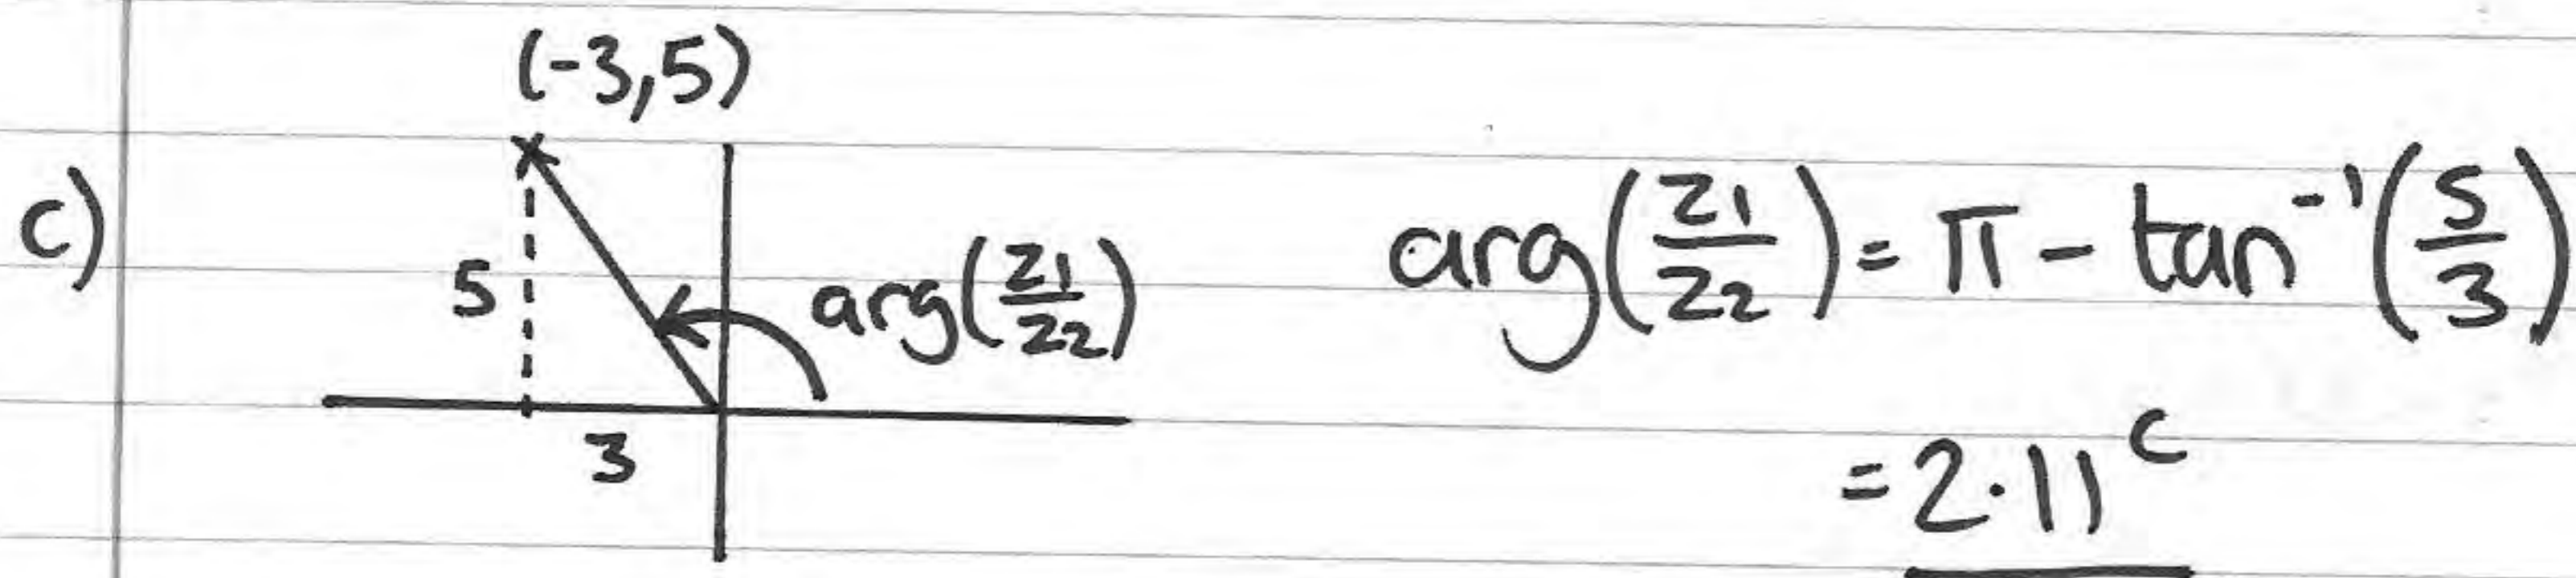 (-3,5)
c)
5
arg(z₁/z₂)
3
arg(z₁/z₂) = π - tan⁻¹(5/3)
= 2·11ᶜ